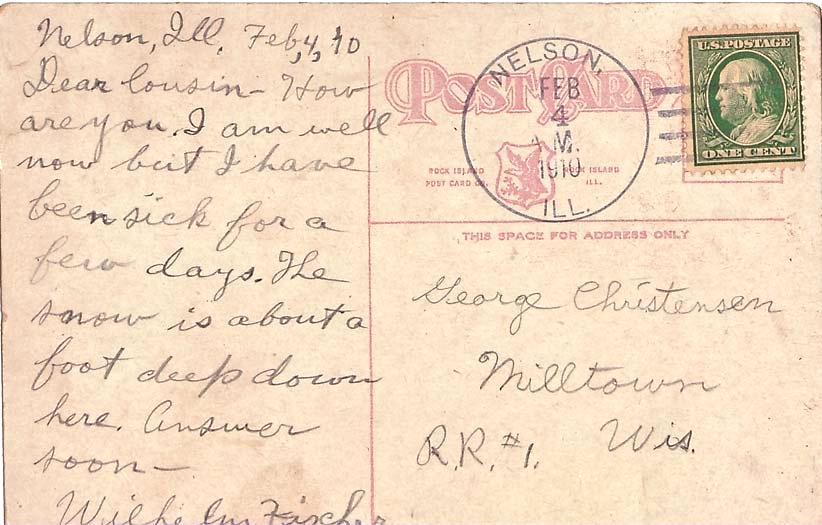 Nelson, Ill, Feb, 4, 10
Dear Cousin - How
are you. I am well
now but I have
been sick for a
few days. The
snow is about a
foot deep down
here. Answer
soon -
Wilhelm Fischer
POST CARD
ROCK ISLAND
POST CARD CO.
ROCK ISLAND
ILL.
NELSON,
FEB
4
A.M.
1910
ILL.
U.S. POSTAGE
ONE CENT
THIS SPACE FOR ADDRESS ONLY
George Christensen
Milltown
R.R. #1. Wis.